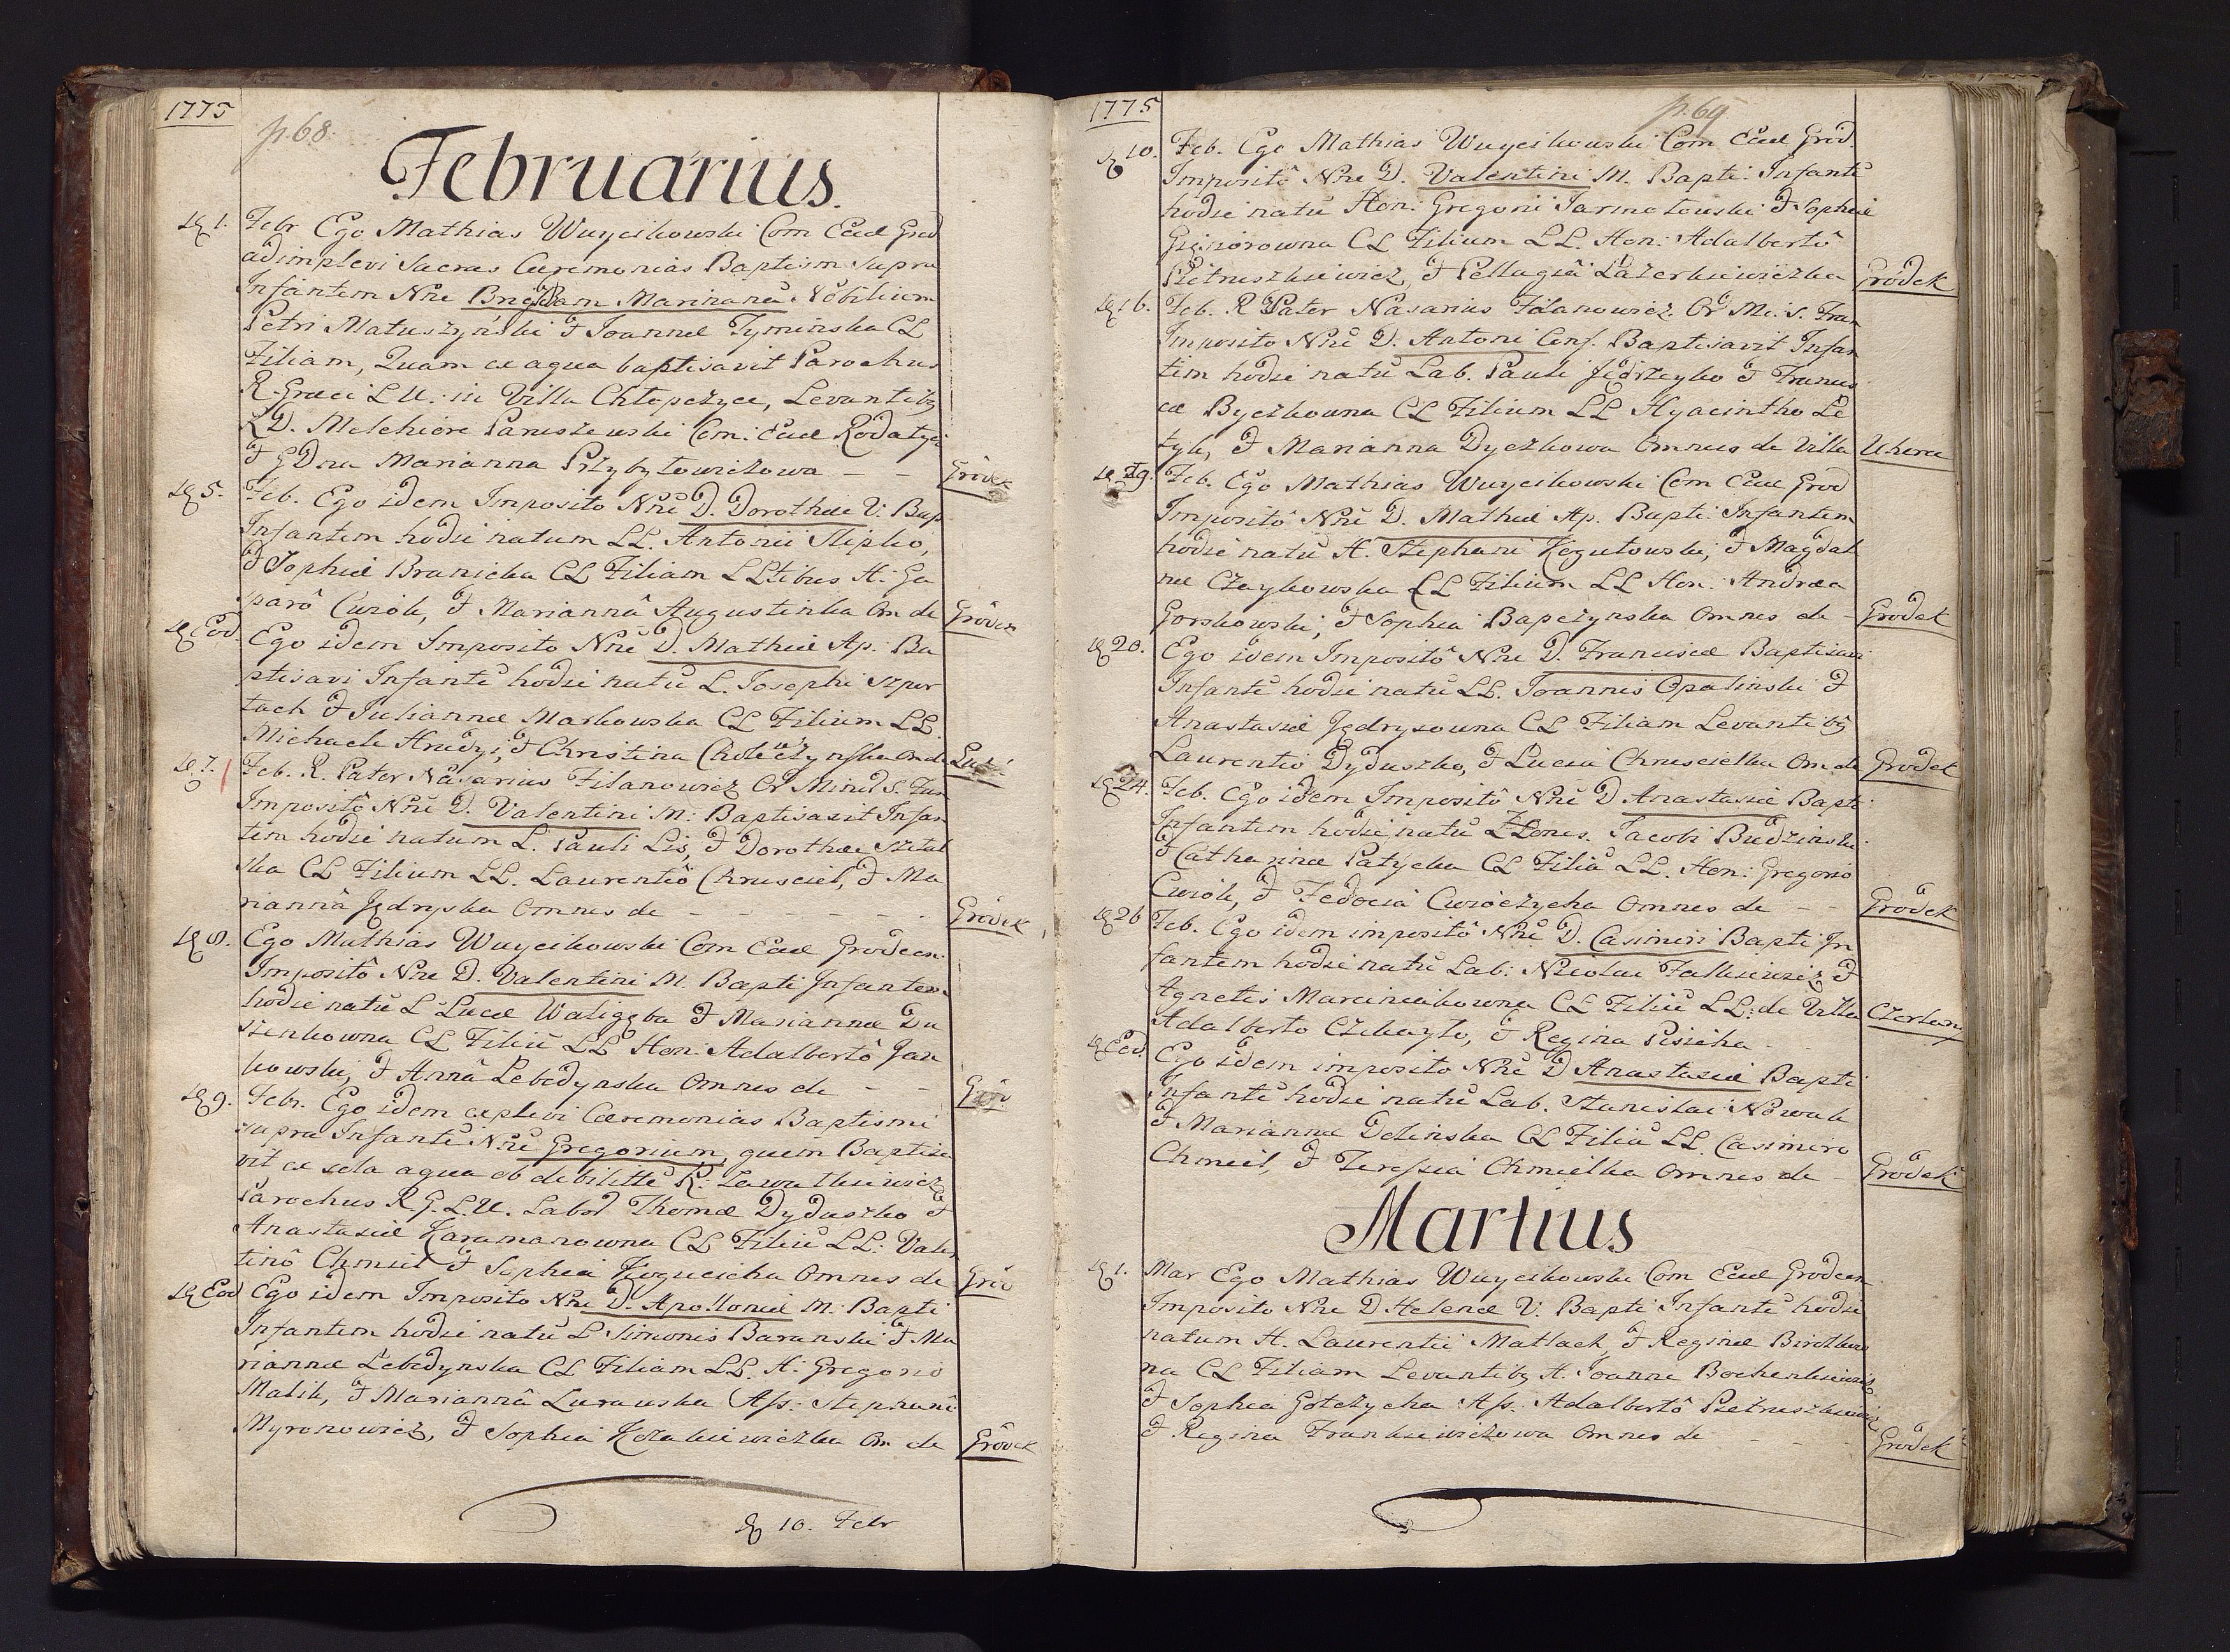 1775
p. 68
Februarius.
1. Febr Ego Mathias Wuycikowski Com Eccl Grod
adimplevi Sacras Cæremonias Baptism Supra
Infantem Nne Brigidam Mariannã Nobilium
Petri Matuszyński & Joannæ Tyminska CL
Filiam, Quam ex aqua baptisavit Parochus
R. Græci L U. in Villa Chłopczyce, Levantibg
RD. Melchiore Paruszewski Com: Eccl Rodatyc
& GDna Marianna Przybyłowiczowa - -
Gródek
5. Feb. Ego idem Imposito Nnẽ D. Dorotheæ V: Bap
Infantem hodie natum LL. Antonii Slipko,
& Sophiæ Branicka CL Filiam LLtibus H: Ga
sparô Cwiok, & Mariannâ Augustinka Om de
Gródek
Eod. Ego idem Imposito Nnẽ D. Mathiæ Ap. Ba
ptisavi Infantẽ hodie natũ L. Josephi Szpor
tach & Juliannæ Markowska CL Filium LL.
Michaele Hrudzy, & Christina Om de
7. Feb. R. Pater Nasarius Filanowicz Or Minor S. Fran
Impositô Nnẽ D. Valentini M: Baptisavit Infan
tem hodie natum L. Pauli Lis, & Dorotheæ
ska CL Filium LL. Laurentiô Chrusciel, & Ma
riannâ Jędryska Omnes de - - - - - -
Gródek
8. Ego Mathias Wuycikowski Com Eccl Grodecen:
Impositô Nne D. Valentini M. Bapti Infantem
hodie natũ L Lucæ Waligęba & Mariannæ Du
szenkowna CL Filiũ LL Hon: Adalbertô Jan
kowski, & Annâ Lebedynska Omnes de - -
Gród
9. Febr. Ego idem explevi Cæremonias Baptismi
supra Infantẽ Nnẽ Gregorium, quem Baptisa
vit ex sola aqua ob debilittẽ R: Lawatkiewicz
Parochus R. G. L. U. Labor Thomæ Dyduszko &
Anastasiæ Karamanowna CL Filiũ LL: Valen
tinô Chmiel & Sophia Omnes de
Gród
Eod Ego idem Imposito Nne D. Apolloniæ M: Bapti
Infantem hodie natũ L Simonis Baranski & Ma
riannæ Lebedynska CL Filiam LL. H: Gregorio
Malik, & Mariannâ Lurawska Ass: Stephanô
Myronowicz, & Sophia Kozakiewiczka Om de
Gródek
10. Febr
1775
p. 69
10. Feb. Ego Mathias Wuycikowski Com Eccl Grod.
Impositô Nne D. Valentini M. Bapti: Infantẽ
hodie natũ Hon: Gregorii Jarmolowski & Sophiæ
CL Filium LL. Hon: Adalbertô
Pietruszkiewicz, & Pellagiâ Lazerkiewiczka
Gródek
16. Feb. R Pater Nasarius Filanowicz Or Mi: S. Fran
Imposito Nnẽ D. Antoni Conf. Baptisavit Infan
tem hodie natũ Lab. Pauli Jędrzeyko & Francis
cæ Byczkowna CL Filium LL Hyacintho Le
tyk, & Marianna Dyczkowa Omnes de Villa
Uhera
19. Feb. Ego Mathias Wuycikowski Com Eccl Grod
Impositô Nnẽ D. Mathiæ Ap. Bapti: Infantem
hodie natũ H. Stephani Kogutowski, & Magdal
næ Czaykowska LL Filium LL Hon: Andrea
Gorskowski, & Sophia Bapczynska Omnes de -
Gródek
20. Ego idem Impositô Nne D. Franciscæ Baptisavi
Infantẽ hodie natũ LL. Joannis Opalinski &
Anastasiæ Jędrysowna CL Filiam Levantibg
Laurentio Dyduszko, & Lucia Chruscielka Om de
Gródek
24. Feb. Ego idem Impositô Nnẽ D Anastasiæ Bapti
Infantem hodie natũ Jacobi Budzinski
& Catharinæ Patycka CL Filiã LL. Hon: Gregorio
Cwiok, & Fedocia Cwioczycha Omnes de - -
Gródek
26 Feb. Ego idem impositô Nnẽ D. Casimiri Bapti In
fantem hodie natũ Lab: Nicolai Falkiewicz &
Agnetis Marciniakowna CL Filiũ LL: de Villa
Adalberto Czekayło, & Regina Pisicha - -
Czerlany
Eod. Ego idem imposito Nnẽ D Anastasiæ Bapti
Infantẽ hodie natũ Lab. Stanislai Nowak
& Mariannæ Dolinska CL Filiã LL. Casimiro
Chmiel, & Teressia Chmielka Omnes de -
Gródek
Martius
1. Mar Ego Mathias Wuycikowski Com Eccl Grodecen
Imposito Nne D Helenæ V. Bapti Infantẽ hodie
natum H. Laurentii Matlach, & Reginæ
na CL Filiam Levantibg H. Joanne Bochenkiewicz
& Sophia Gołczycka Ass. Adalbertô Pietruszkiewicz
& Regina Frankiewiczowa Omnes de - - -
Gródek